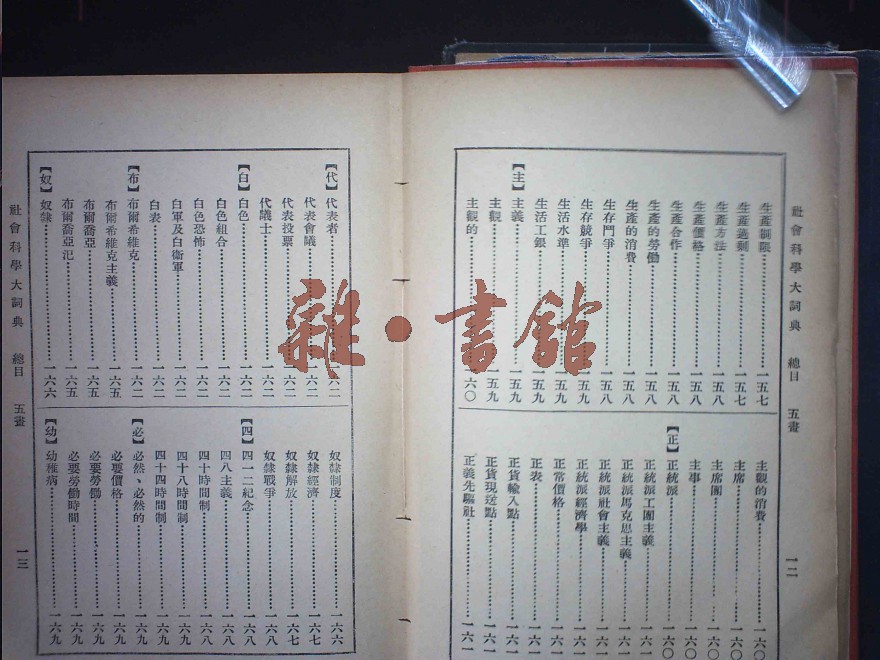 社會科學大詞典 總目 五畫
一二
生產制限 一五七
生產過剩 一五七
生產方法 一五八
生產價格 一五八
生產合作 一五八
生產的勞働 一五八
生產的消費 一五八
生存鬥爭 一五八
生存競爭 一五九
生活水準 一五九
生活工銀 一五九
【主】主義 一五九
主觀 一五九
主觀的 一六〇
主觀的消費 一六〇
主席 一六〇
主席團 一六〇
主事 一六〇
【正】正統派 一六〇
正統派工團主義 一六〇
正統派馬克思主義 一六一
正統派社會主義 一六一
正統派經濟學 一六一
正常價格 一六一
正表 一六一
正貨輸入點 一六一
正貨現送點 一六一
正義先驅社 一六一
【代】代表者 一六二
代表會議 一六二
代表投票 一六二
代議士 一六二
【白】白色 一六二
白色組合 一六二
白色恐怖 一六二
白軍及白衛軍 一六二
白表 一六二
【布】布爾希維克 一六二
布爾希維克主義 一六五
布爾喬亞 一六五
布爾喬亞氾 一六五
【奴】奴隸 一六六
奴隸制度 一六六
奴隸經濟 一六七
奴隸解放 一六七
奴隸戰爭 一六八
【四】四一二紀念 一六八
四八主義 一六八
四十時間制 一六八
四十八時間制 一六九
四十四時間制 一六九
【必】必然、必然的 一六九
必要價格 一六九
必要勞働 一六九
必要勞働時間 一六九
【幼】幼稚病 一六九
社會科學大詞典 總目 五畫
一三
雜·書館